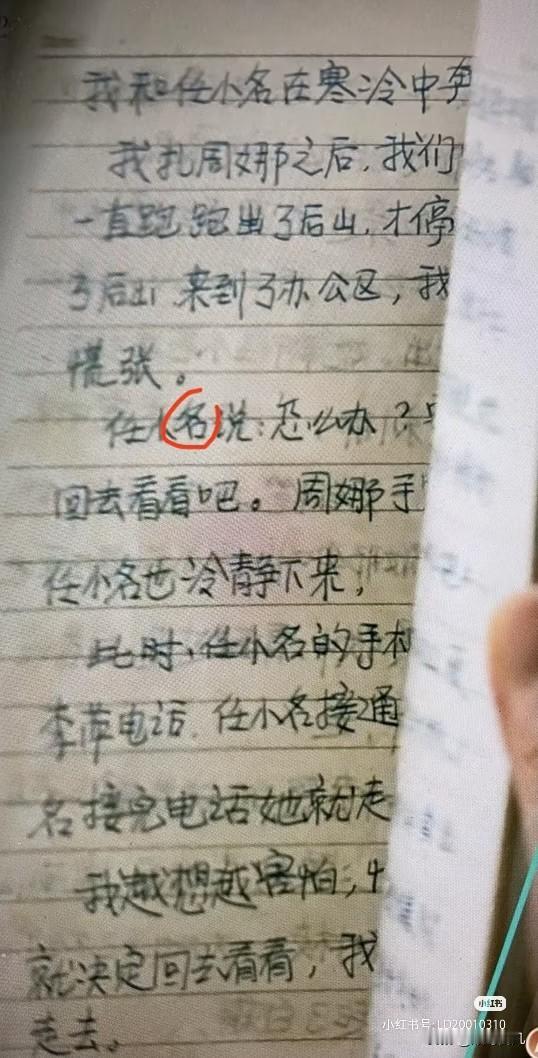 我和任小名在寒冷中奔
我扎周娜之后,我们
一直跑 跑出了后山,才停
了后山 来到了办公区,我
慌张。
任小名说:怎么办?
回去看看吧。周娜手
任小名也冷静下来,
此时、任小名的手机
李萍电话. 任小名接通
名接完电话她就走
我越想越害怕,
就决定回去看看,我
走去。
小红书
小红书号:LD20010310